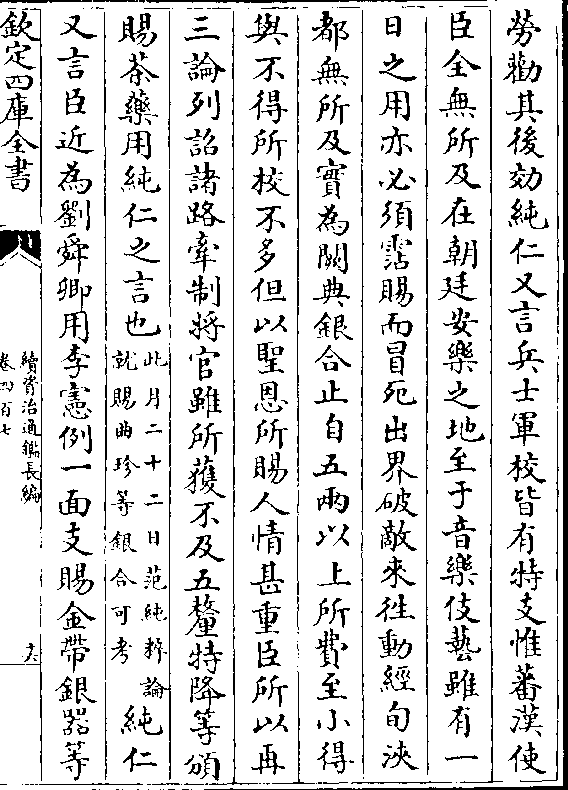 勞勸其後効純仁又言兵士軍校皆有特支惟蕃漢使
臣全無所及在朝廷安樂之地至于音樂伎藝雖有一
日之用亦必須霑賜而冒死出界破敵來徃動經旬浹
都無所及實為闕典銀合止自五兩以上所費至小得
與不得所校不多但以聖恩所賜人情甚重臣所以再
三論列詔諸路牽制將官雖所獲不及五釐特降等頒
賜茶藥用純仁之言也此月二十二日范純粹論
就賜曲珍等銀合可考純仁
又言臣近為劉舜卿用李憲例一面支賜金帶銀器等
欽定四庫全書
續資治通鑑長編
卷四百七